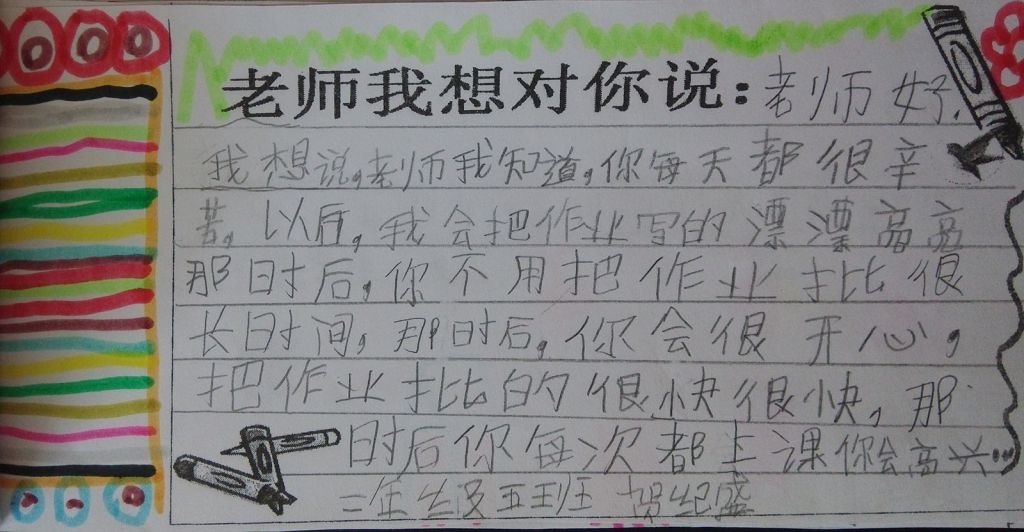 老师我想对你说：老师好，
我想说，老师我知道，你每天都很辛
苦，以后，我会把作业写的漂漂高高
那时后，你不用把作业批很
长时间，那时后，你会很开心，
把作业批的很快很快，那
时后你每次都上课你会高兴…
二年级五班 贺纪盛